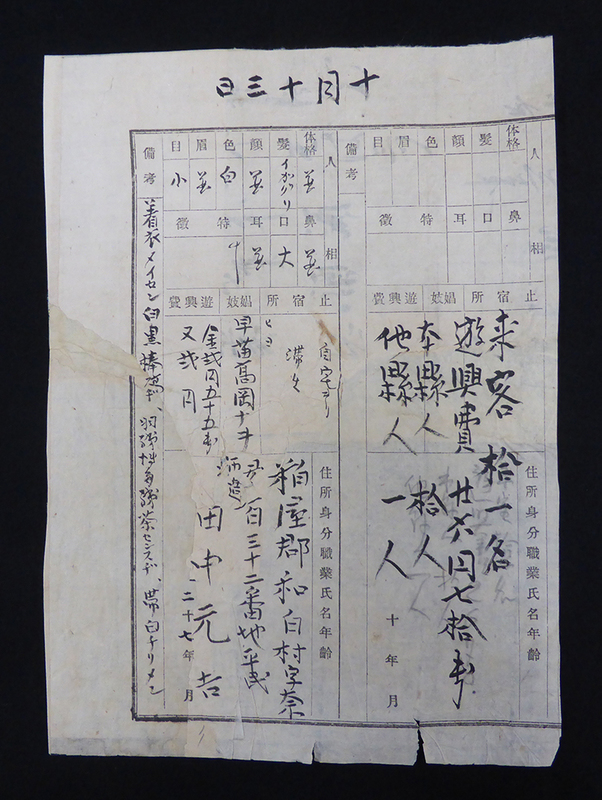 十月十三日
人相
体格
髪
顔
色
眉
目
鼻
口
耳
特徴
備考
止宿所
娼妓
遊興費
住所身分職業氏名年齢
来客拾一名
遊興費廿六円七拾銭
本縣人 拾人
他縣人 一人
十年 月
人相
体格 並
髪 イガグリ
顔 並
色 白
眉 並
目 小
鼻 並
口 大
耳 並
特徴 ナ
止宿所
娼妓
遊興費
自宅ヨリ
早苗高岡ナヲ
金弐円五十五銭
又弐円
住所身分職業氏名年齢
粕屋郡和白村字奈
百三十二番地平民
酒造
田中元吉
二十七年 月
備考
着衣メイセン白黒棒縞、羽織博多織茶センスヂ、帯白チリメン